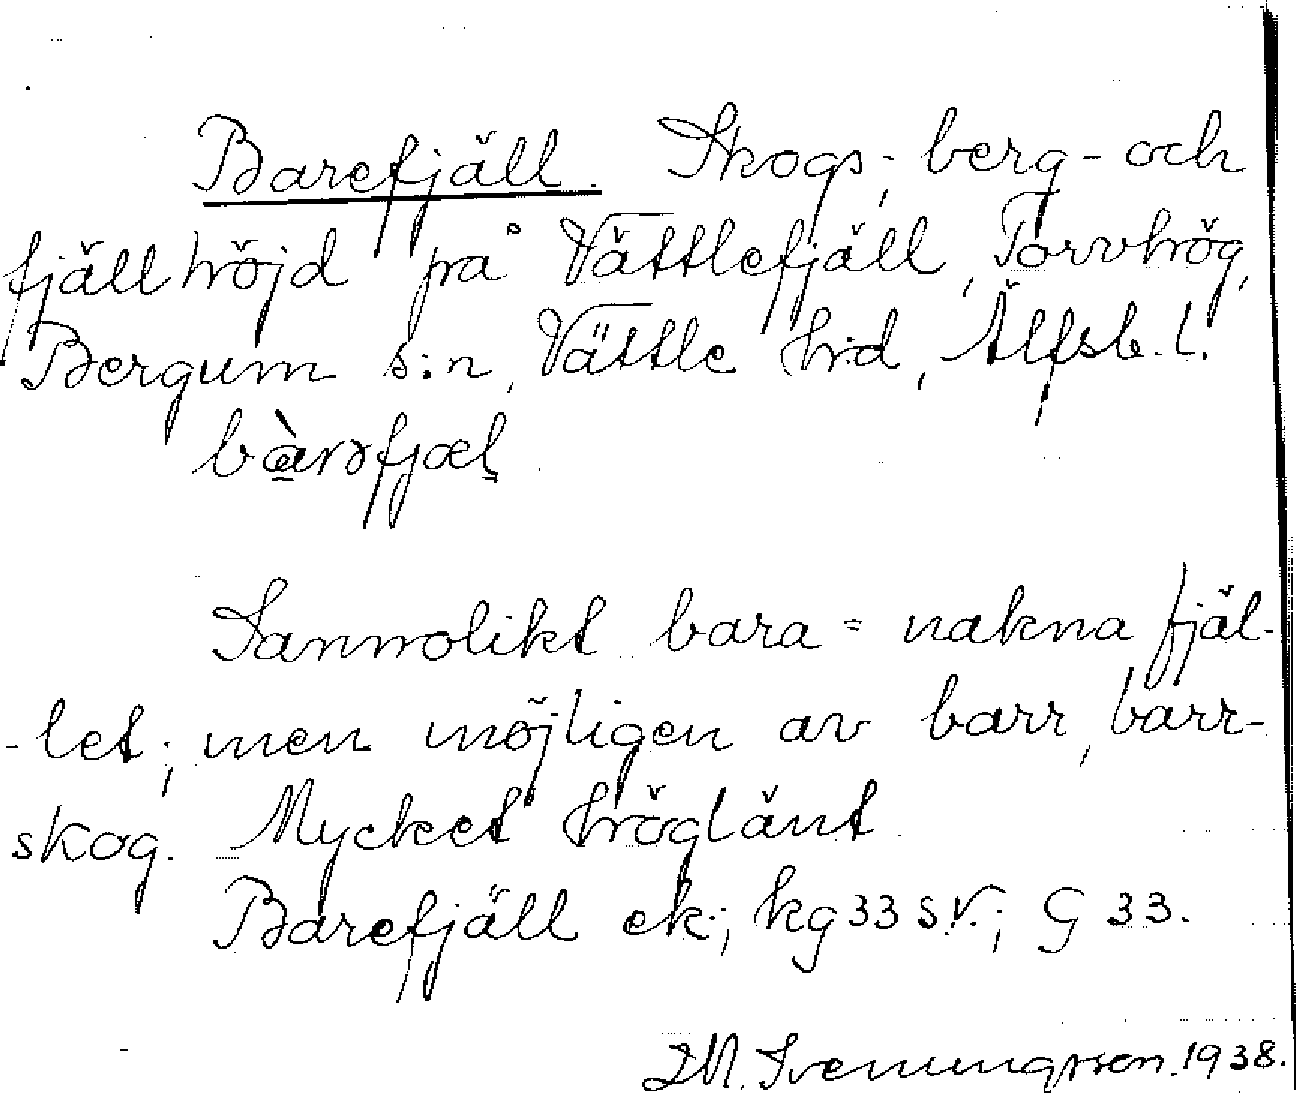 Barefjäll. Skogs-, berg- och
fjällhöjd på Vättlefjäll, Torvhög,
Bergum s:n, Vättle hd, Älfsb. l.
bàrəfjæl
Sannolikt bara = nakna fjäl-
-let; men möjligen av barr, barr-
skog. Mycket höglänt.
Barefjäll ek.; kg 33 s.v.; G 33.
Svenungsson. 1938.